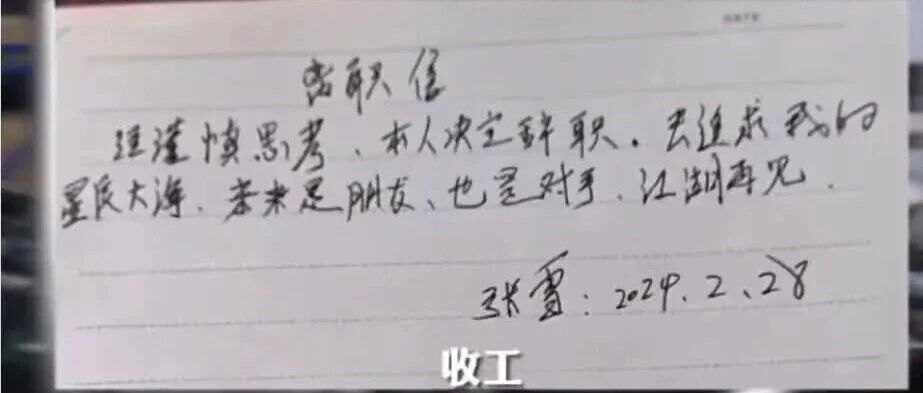 离职信
经谨慎思考、本人决定辞职。去追求我的
星辰大海、未来是朋友、也是对手、江湖再见.
张雪:2024.2.28
收工